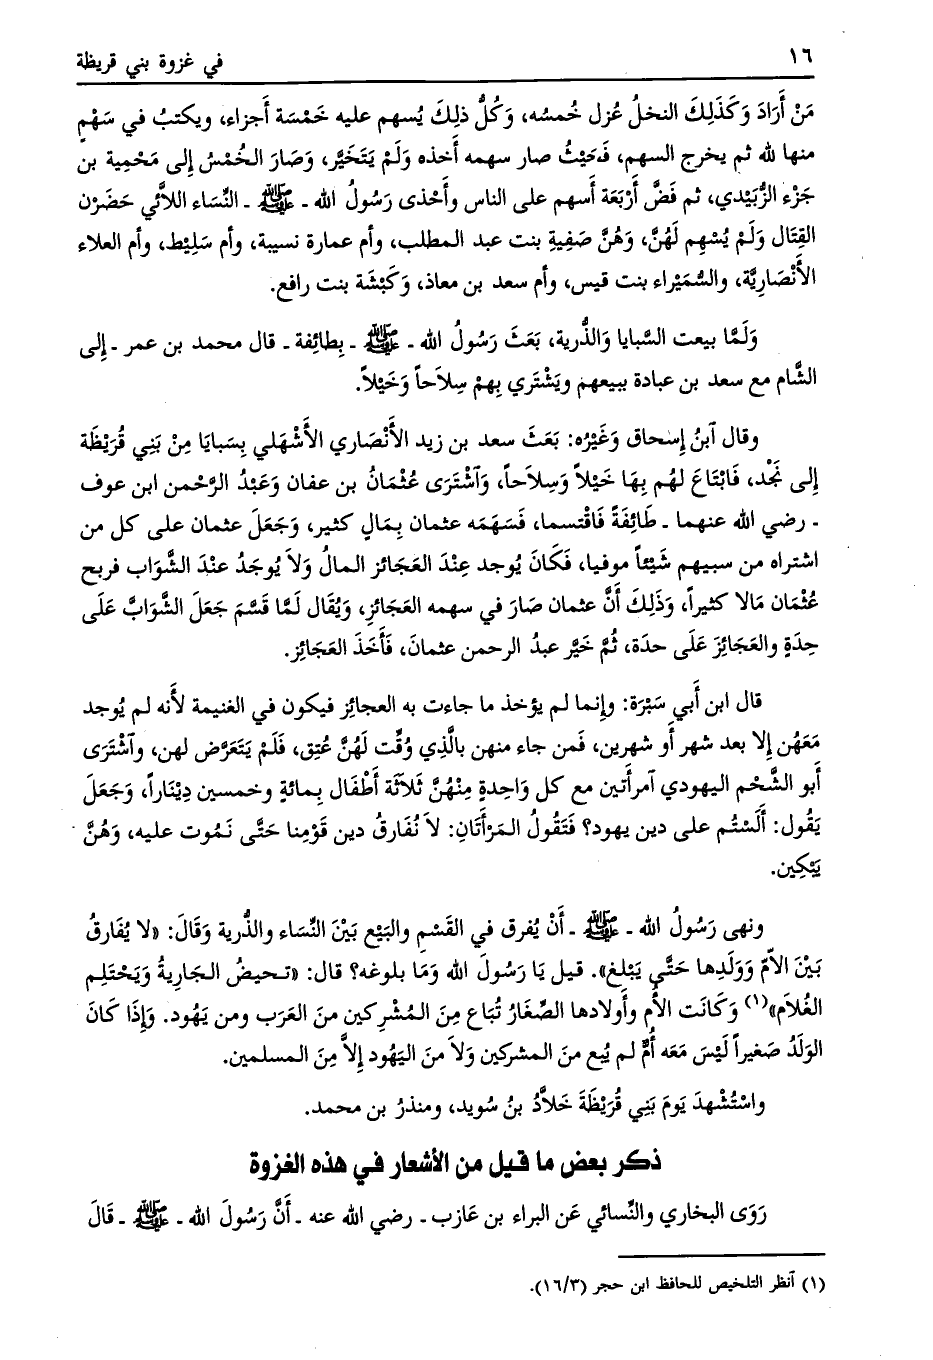 ١٦
في غزوة بني قريظة
مَنْ أَرَادَ وَكَذَلِكَ النخلُ عُزل خُمسُه، وَكُلُّ ذلِكَ يُسهم عليه خَمْسَة أَجزاء، ويكتبُ في سَهْمٍ
منها لله ثم يخرج السهم، فَحَيْثُ صار سهمه أَخذه وَلَمْ يَتَخَيَّر، وَصَارَ الخُمْسُ إلى مَحْمِية بن
جَزْء الزُّبَيْدي، ثم فَضَّ أَرْبَعَة أَسهم على الناس وأَحْذى رَسُولُ الله ـ ﷺ ـ النِّسَاء اللائَّي حَضَرْن
القِتَال وَلَمْ يُسْهِم لَهُنَّ، وَهُنَّ صَفِيةِ بنت عبد المطلب، وأم عمارة نسيبة، وأم سَلِيْط، وأم العلاء
الأَنْصَارِيَّة، والسُّمَيْراء بنت قيس، وأم سعد بن معاذ، وَكَبْشَة بنت رافع.
وَلَمَّا بيعت السَّبايا وَالذُّرية، بَعَثَ رَسُولُ الله ـ ﷺ ـ بِطائِفة ـ قال محمد بن عمر ـ إلى
الشَّام مع سعد بن عبادة ببيعهم ويَشْتَري بِهِمْ سِلاَحاً وَخَيْلاً.
وقال آبنُ إسحاق وَغَيْرُه: بَعَثَ سعد بن زيد الأَنْصَاري الأَشْهَلي بِسَبايا مِنْ بَنِي قُرَيْظَة
إلى نَجْد، فَابْتَاعَ لهُم بِهَا خَيْلاً وَسِلاَحاً، وَآشْتَرَى عُثْمَانُ بن عفان وَعَبْدُ الرَّحْمن ابن عوف
ـ رضي الله عنهما ـ طَائِفَةً فَاقْتسما، فَسَهَمَه عثمان بِمَالٍ كثير، وَجَعَلَ عثمان على كل من
اشتراه من سبيهم شَيْئاً موفيا، فَكَانَ يُوجد عِنْدَ العَجَائز المالُ وَلاَ يُوجَدُ عندَ الشَّواب فربح
عُثْمَان مَالا كثيراً، وَذَلِكَ أَنَّ عثمان صَارَ في سهمه العَجَائزِ، وَيُقَال لَمَّا قَسَّمَ جَعَلَ الشَّوَابَّ عَلَى
حِدَةٍ والعَجَائِزَ عَلَى حدَة، ثُمَّ خَيَّر عبدُ الرحمن عثمانَ، فَأَخَذَ العَجَائِز.
قال ابن أَبي سَبْرَة: وإنما لم يؤخذ ما جاءت به العجائز فيكون في الغنيمة لأنه لم يُوجد
مَعَهُن إلا بعد شهر أَو شهرين، فَمن جاء منهن بالَّذِي وُقِّت لَهُنَّ عُتِق، فَلَمْ يَتَعَرَّض لهن، وآشْتَرَى
أَبو الشَّحْم اليهودي آمرأَتين مع كل وَاحِدةٍ مِنْهُنَّ ثَلاَثَة أَطْفَال بِمائةٍ وخمسين دِيْنَاراً، وَجَعَلَ
يَقُول: أَلَسْتُم على دين يهود؟ فَتَقُولُ المَرْأَتَانِ: لاَ نُفَارقُ دين قَوْمِنا حَتَّى نَمُوت عليه، وَهُنَّ
يَبْكِين.
ونهى رَسُولُ الله ـ ﷺ ـ أَنْ يُفرق في القَسْمِ والبَيْع بَيْنَ النِّسَاء والذُّرية وَقَالَ: «لا يُفَارقُ
بَيْنَ الأمّ وَوَلَدِها حَتَّى يَبْلغ». قيل يَا رَسُولَ الله وَمَا بلوغه؟ قال: «تحيضُ الجَاريةُ وَيَحْتَلِم
الغُلاَم»(١) وَكَانَت الأُم وأَولادها الصِّغَارُ تُبَاع مِنَ المُشْرِكين منَ العَرَب ومن يَهُود. وَإِذَا كَانَ
الوَلَدُ صَغيراً لَيْسَ مَعَه أُمٌّ لم يُبع منَ المشركين وَلاَ منَ اليَهُود إلاَّ مِنَ المسلمين.
واسْتُشْهِدَ يَومَ بَنِي قُرَيْظَةَ خَلاَّدُ بنُ سُويد، ومنذرُ بن محمد.
ذكر بعض ما قيل من الأشعار في هذه الغزوة
رَوَى البخاري والنِّسائي عَن البراء بن عازب ـ رضي الله عنه ـ أَنَّ رَسُولَ الله ـ ﷺ ـ قَالَ
(١) آنظر التلخيص للحافظ ابن حجر (١٦/٣).